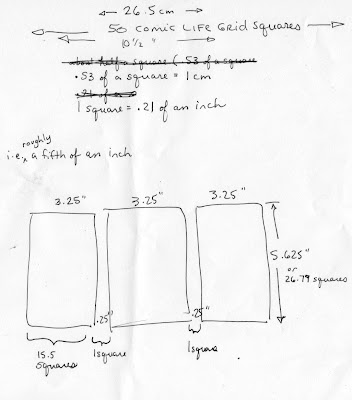 26.5 cm
50 COMIC LIFE GRID SQUARES
10 1/2 "
about half a square (.53 of a square
.53 of a square = 1 cm
.21 of an
1 square = .21 of an inch
roughly
i.e. a fifth of an inch
3.25" 3.25" 3.25"
5.625"
or
26.79 squares
.25" .25"
15.5 squares
1 square
1 square